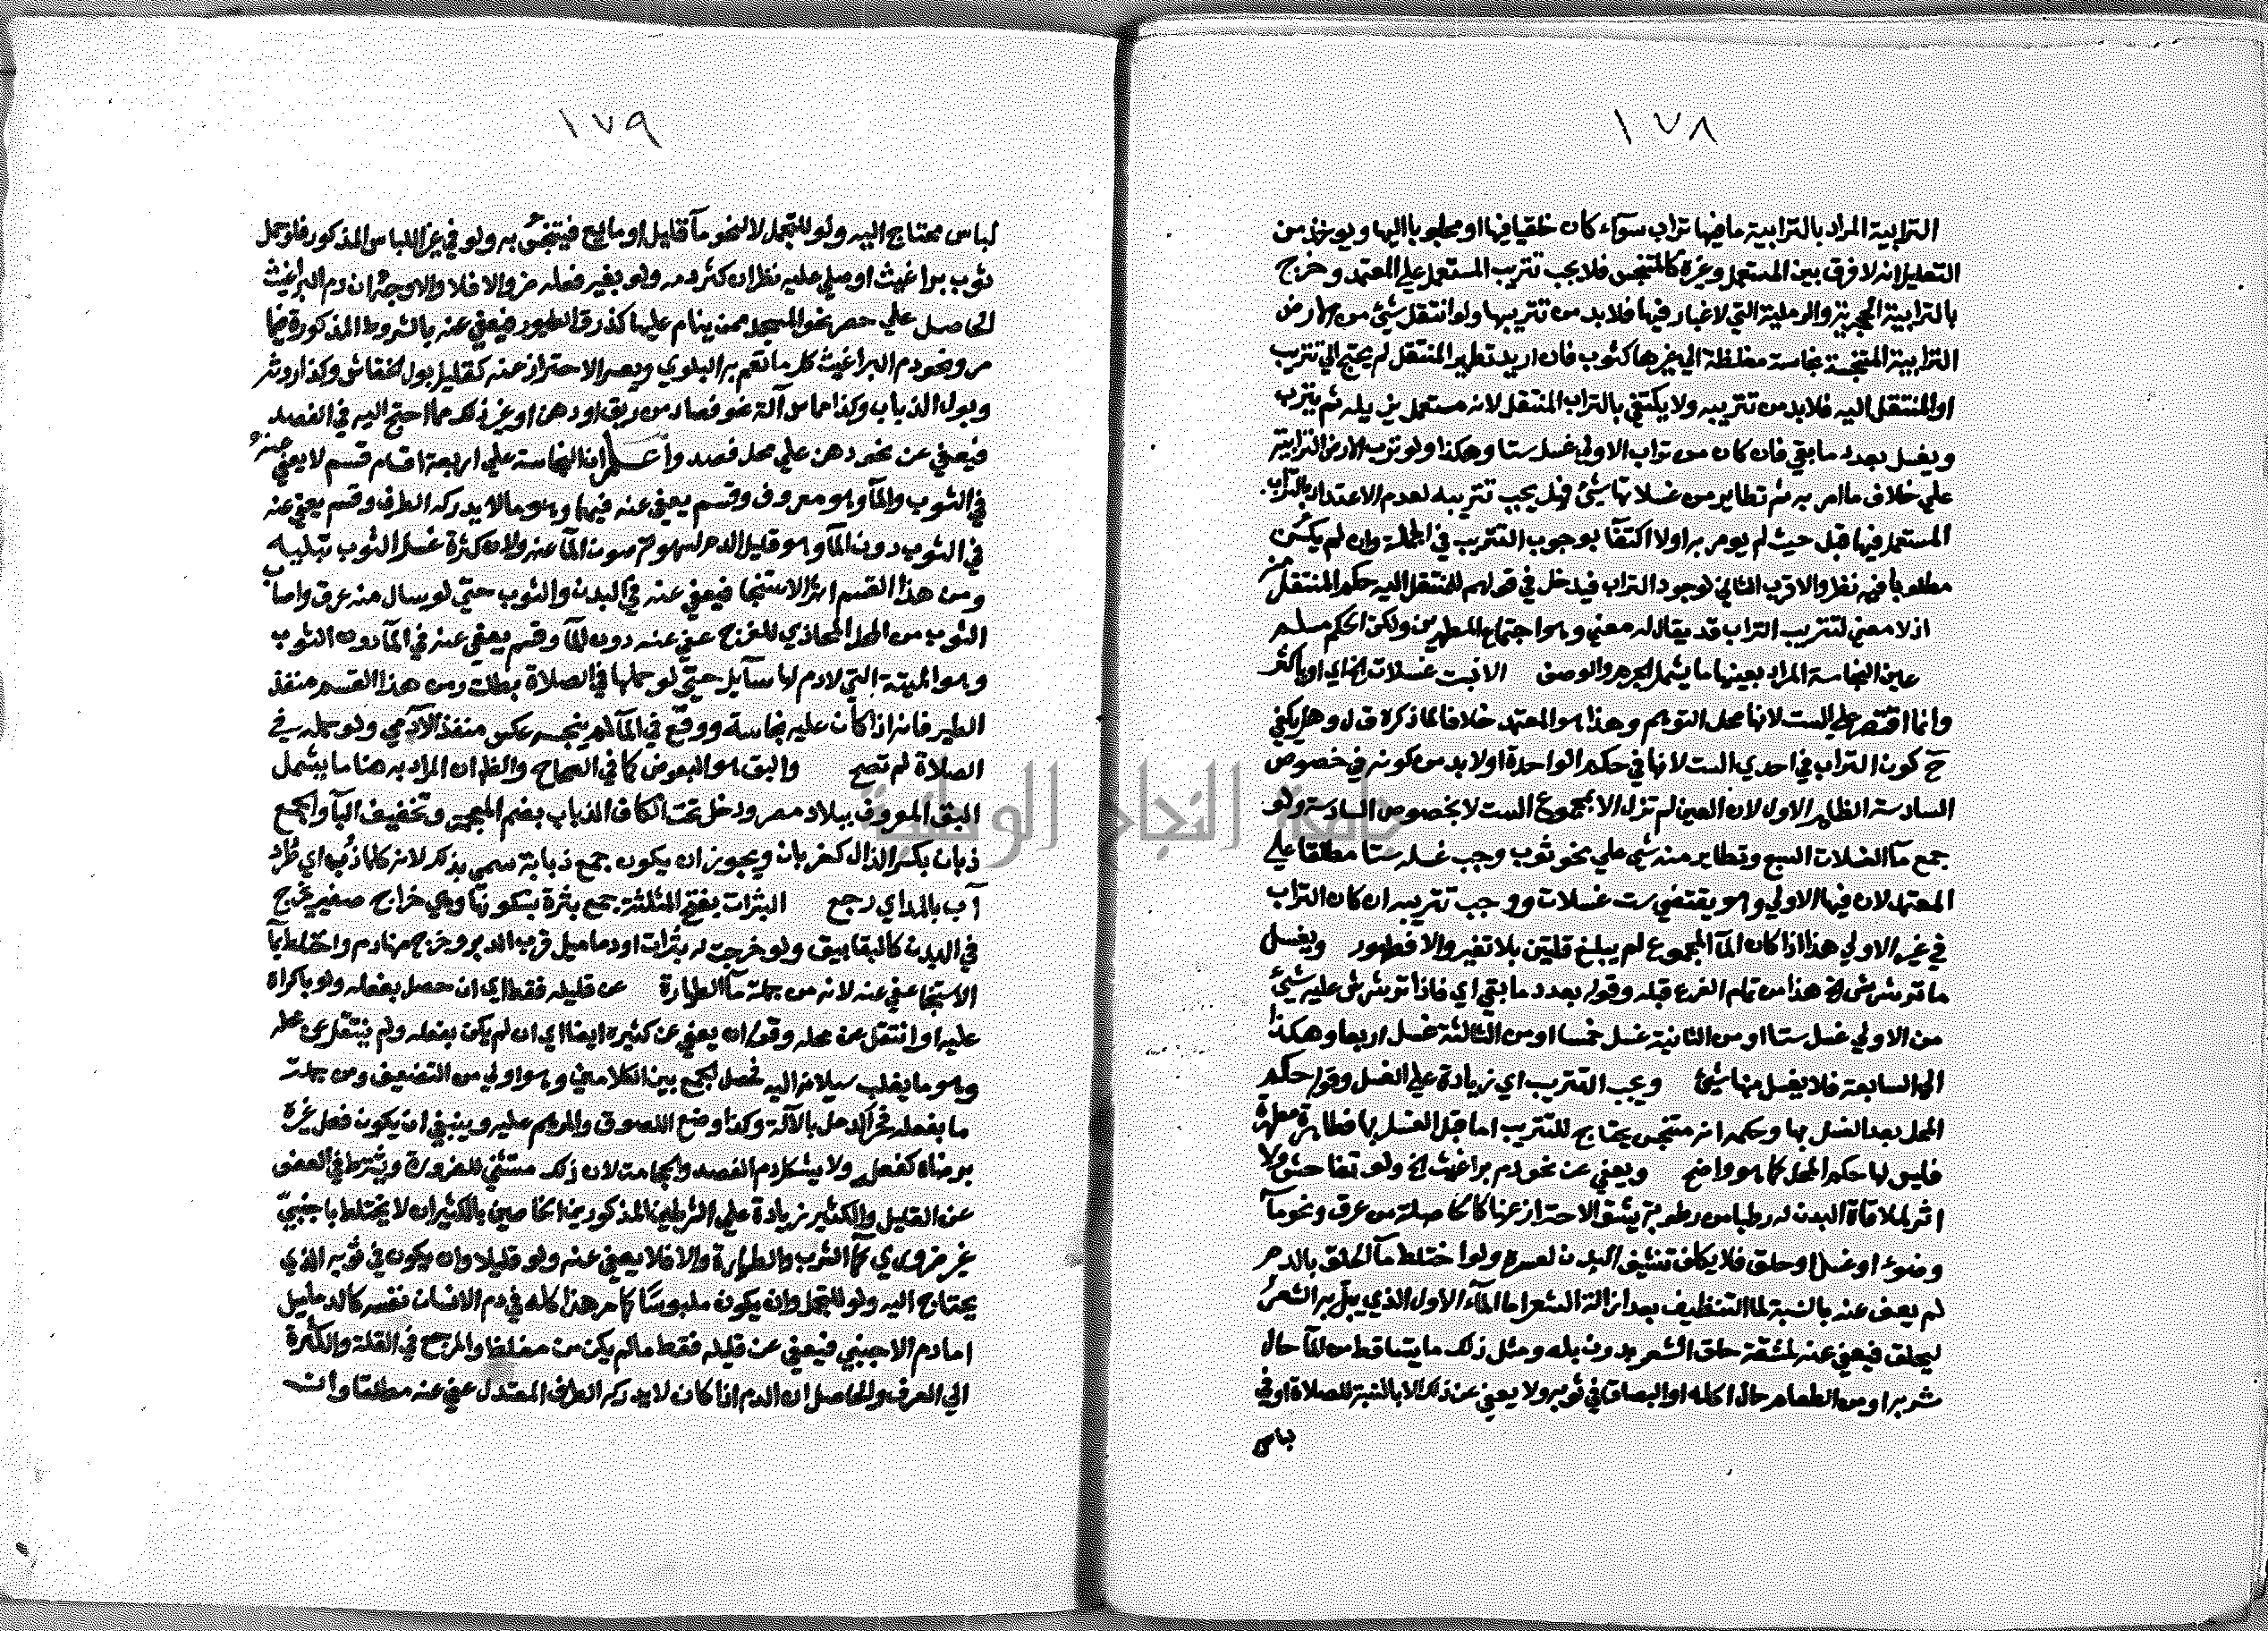 ١٧٨
الترابية المراد بالترابية ما فيها تراب سوآء كان خلقيا فيها او مجلوبا اليها ويوخذ من
التعليل انه لا فرق بين المستعمل وغيره كالمتنجس فلا يجب تتريب المستعمل علي المعتمد وخرج
بالترابية الحجرية والرملية التي لا غبار فيها فلا بد من تتريبها ولو انتقل شيئ من الارض
الترابية المتنجسة بنجاسة مغلظة الي غيرها كثوب فان اريد تطهير المنتقل لم يحتج الي تتريب
او المنتقل اليه فلا بد من تتريبه ولا يكتفي بالتراب المنتقل لانه مستعمل ثم يترب
ويغسل بعدد ما بقي فان كان من تراب الاولي غسل ستا وهكذا ولو ترب الارض الترابية
علي خلاف ما امر به ثم تطاير من غسلاتها شيئ فهل يجب تتريبه لعدم الاعتداد بالتراب
المستعمل فيها قبل حيث لم يومر به اولا اكتفآ بوجوب التتريب في الجملة وان لم يكن
مطلوبا فيه نظر والاقرب الثاني لوجود التراب فيدخل في قولهم للمنتقل اليه حكم المنتقل عنه
اذ لا معني لتتريب التراب قد يقال له معني وهو اجتماع المطهرين ولكن الحكم مسلم
عين النجاسة المراد بعينها ما يشمل الجرم والوصف الا بست غسلات الخ اي او باكثر
وانما اقتصر علي الست لانها محل التوهم وهذا هو المعتمد خلافا لما ذكره ق ل وهل يكفي
ح كون التراب في احدي الست لانها في حكم الواحدة او لا بد من كونه في خصوص
السادسة الظاهر الاول لان العين لم تزل الا بمجموع الست لا بخصوص السادسة ولو
جمع مآ الغسلات السبع وتطاير منه شيئ علي نحو ثوب وجب غسله ستا مطلقا علي
المعتمد لان فيها الاولي وهو يقتضي ست غسلات ووجب تتريبه ان كان التراب
في غير الاولي هذا اذا كان المآ المجموع لم يبلغ قلتين بلا تغير والا فطهور ويغسل
ما ترشرش الخ هذا من تمام الفرع قبله وقوله بعدد ما بقي اي فاذا ترشرش عليه شيئ
من الاولي غسل ستا او من الثانية غسل خمسا او من الثالثة غسل اربعا وهكذا
الي السابعة فلا يغسل منها شيئ ويجب التتريب اي زيادة علي الغسل وقوله حكم
المحل بعد الغسل بها وحكمه انه متنجس يحتاج للتتريب اما قبل الغسل بها فطاهرة مطهرة
فليس لها حكم المحل كما هو واضح ويعفي عن نحو دم براغيث الخ ولو تفاحش ولا
اثر لملاقاة البدن له رطبا من رطوبة يشق الاحتراز عنها كالحاصلة من عرق ونحو مآ
وضوء او غسل او حلق فلا يكلف تنشيف البدن لعسره ولو اختلط مآ الحلق بالدم
لم يعف عنه بالنسبة لمآ التنظيف بعد ازالة الشعر اما المآء الاول الذي يبل به الشعر
ليحلق فيعفي عنه لمشقة حلق الشعر بدون بله ومثل ذلك ما يتساقط من المآ حال
شربه او من الطعام حال اكله او البصاق في ثوبه ولا يعفي عن ذلك الا بالنسبة للصلاة او في
لباس
١٧٩
لباس محتاج اليه ولو للتجمل لا لنحو مآ قليل او مايع فيتنجس به ولو في غير اللباس المذكور فلو حمل
ثوب براغيث او صلي عليه نظر ان كثر دمه ولو بغير فعله ضر والا فلا والاوجه ان دم البراغيث
الحاصل علي حصر نحو المسجد ممن ينام عليها كذرق الطيور فيعفي عنه بالشروط المذكورة فيما
مر ونحو دم البراغيث كل ما تعم به البلوي ويعسر الاحتراز عنه كقليل بول الخفاش وكذا روثه
وبول الذباب وكذا مماس آلة نحو فصاد من ريق او دهن او غير ذلك مما احتج اليه في الفصد
فيعفي عن نحو دهن علي محل فصد واعلم ان النجاسة علي اربعة اقسام قسم لا يعفي عنه
في الثوب والمآ وهو معروف وقسم يعفي عنه فيهما وهو ما لا يدركه الطرف وقسم يعفي عنه
في الثوب دون المآ وهو قليل الدم لسهولة صون المآ عنه ولان كثرة غسل الثوب تبليه
ومن هذا القسم اثر الاستنجا فيعفي عنه في البدن والثوب حتي لو سال منه عرق واصاب
الثوب من المحل المحاذي للفرج عفي عنه دون المآ وقسم يعفي عنه في المآ دون الثوب
وهو الميتة التي لا دم لها سآيل حتي لو حملها في الصلاة بطلت ومن هذا القسم منفذ
الطير فانه اذا كان عليه نجاسة ووقع في المآ لم ينجسه عكس منفذ الآدمي ولو حمله في
الصلاة لم تصح والبق هو البعوض كما في الصحاح والظاهر ان المراد به هنا ما يشمل
البق المعروف ببلاد مصر ودخل تحت الكاف الذباب بضم المعجمة وتخفيف البآ والجمع
ذبان بكسر الذال كغربان ويجوز ان يكون جمع ذبابة سمي بذلك لانه كلما ذب اي طرد
آب بالمد اي رجع البثرات بفتح المثلثة جمع بثرة بسكونها وهي خراج صغير يخرج
في البدن كالبقابيق ولو خرجت له بثرات او دماميل قرب الدبر وخرج منها دم واختلط بمآ
الاستنجا عفي عنه لانه من جملة مآ الطهارة عن قليله فقط اي ان حصل بفعله ولو باكراه
عليه او انتقل عن محله وقوله ان يعفي عن كثيره ايضا اي ان لم يكن بفعله ولم ينتقل عن محله
وهو ما يغلب سيلانه اليه فحصل الجمع بين الكلامين وهو اولي من التضعيف ومن جملة
ما بفعله فجر الدمل بالآلة وكذا وضع اللصوق والمرهم عليه وينبغي ان يكون فعل غيره
برضاه كفعله ولا يشكل دم الفصد والحجامة لان ذلك مستثني للضرورة ويشترط في العفو
عن القليل والكثير زيادة علي الشرطين المذكورين الخاصين بالكثير ان لا يختلط باجنبي
غير ضروري كمآ الشرب والطهارة والا فلا يعفي عنه ولو قليلا وان يكون في ثوبه الذي
يحتاج اليه ولو للتجمل وان يكون ملبوسا كما مر هذا كله في دم الانسان نفسه كالدماميل
اما دم الاجنبي فيعفي عن قليله فقط ما لم يكن من مغلظ والمرجع في القلة والكثرة
الي العرف والحاصل ان الدم اذا كان لا يدركه الطرف المعتدل عفي عنه مطلقا وان
جامعة النجاح الوطنية